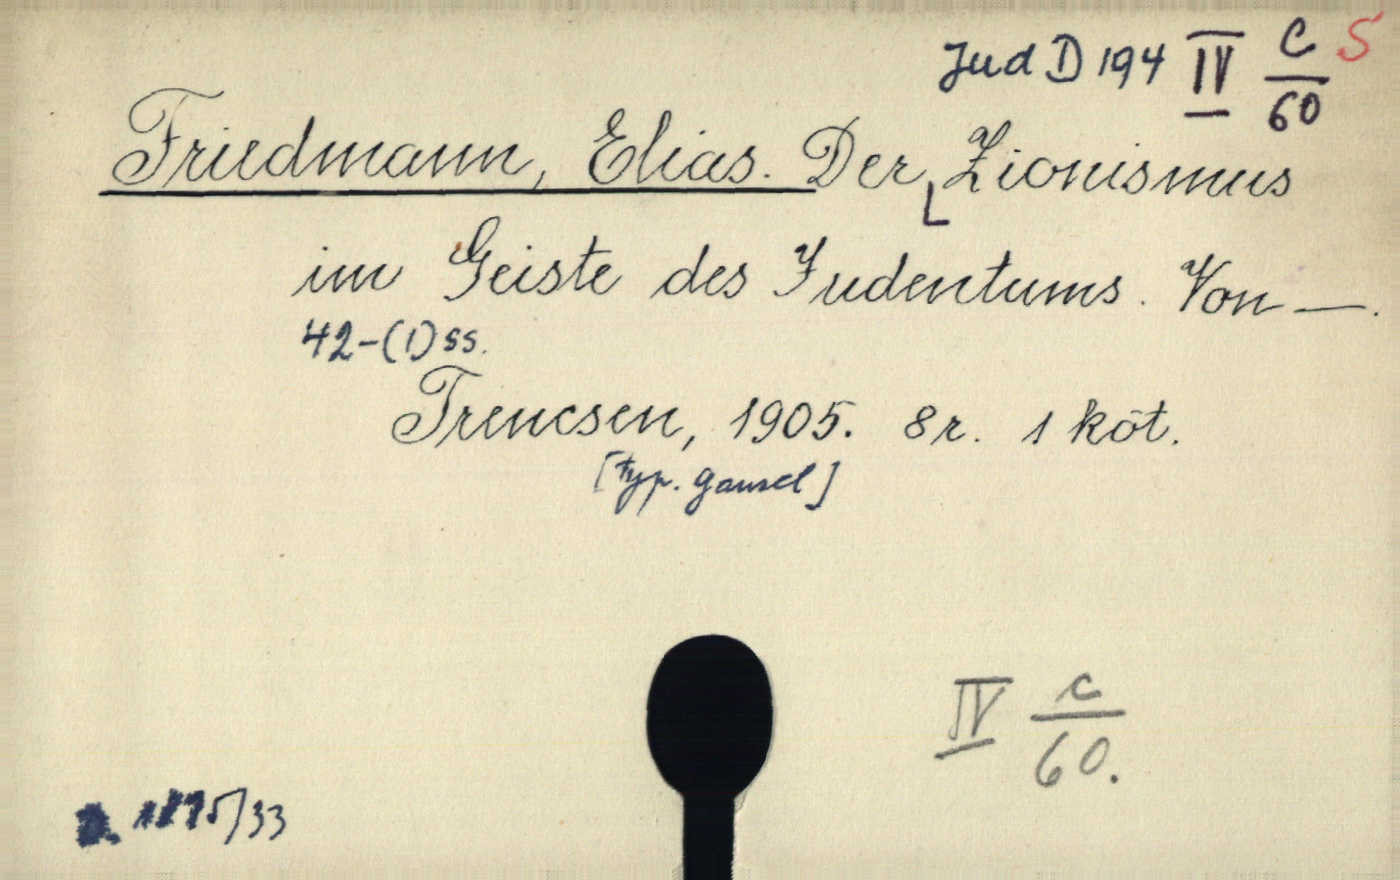 Jud D 194 IV C/60 S
Friedmann, Elias. Der Zionismus
im Geiste des Judentums. Von —.
42-(1) ss.
Trencsen, 1905. 8r. 1 köt.
[typ. Gansel]
IV c/60.
1875/33